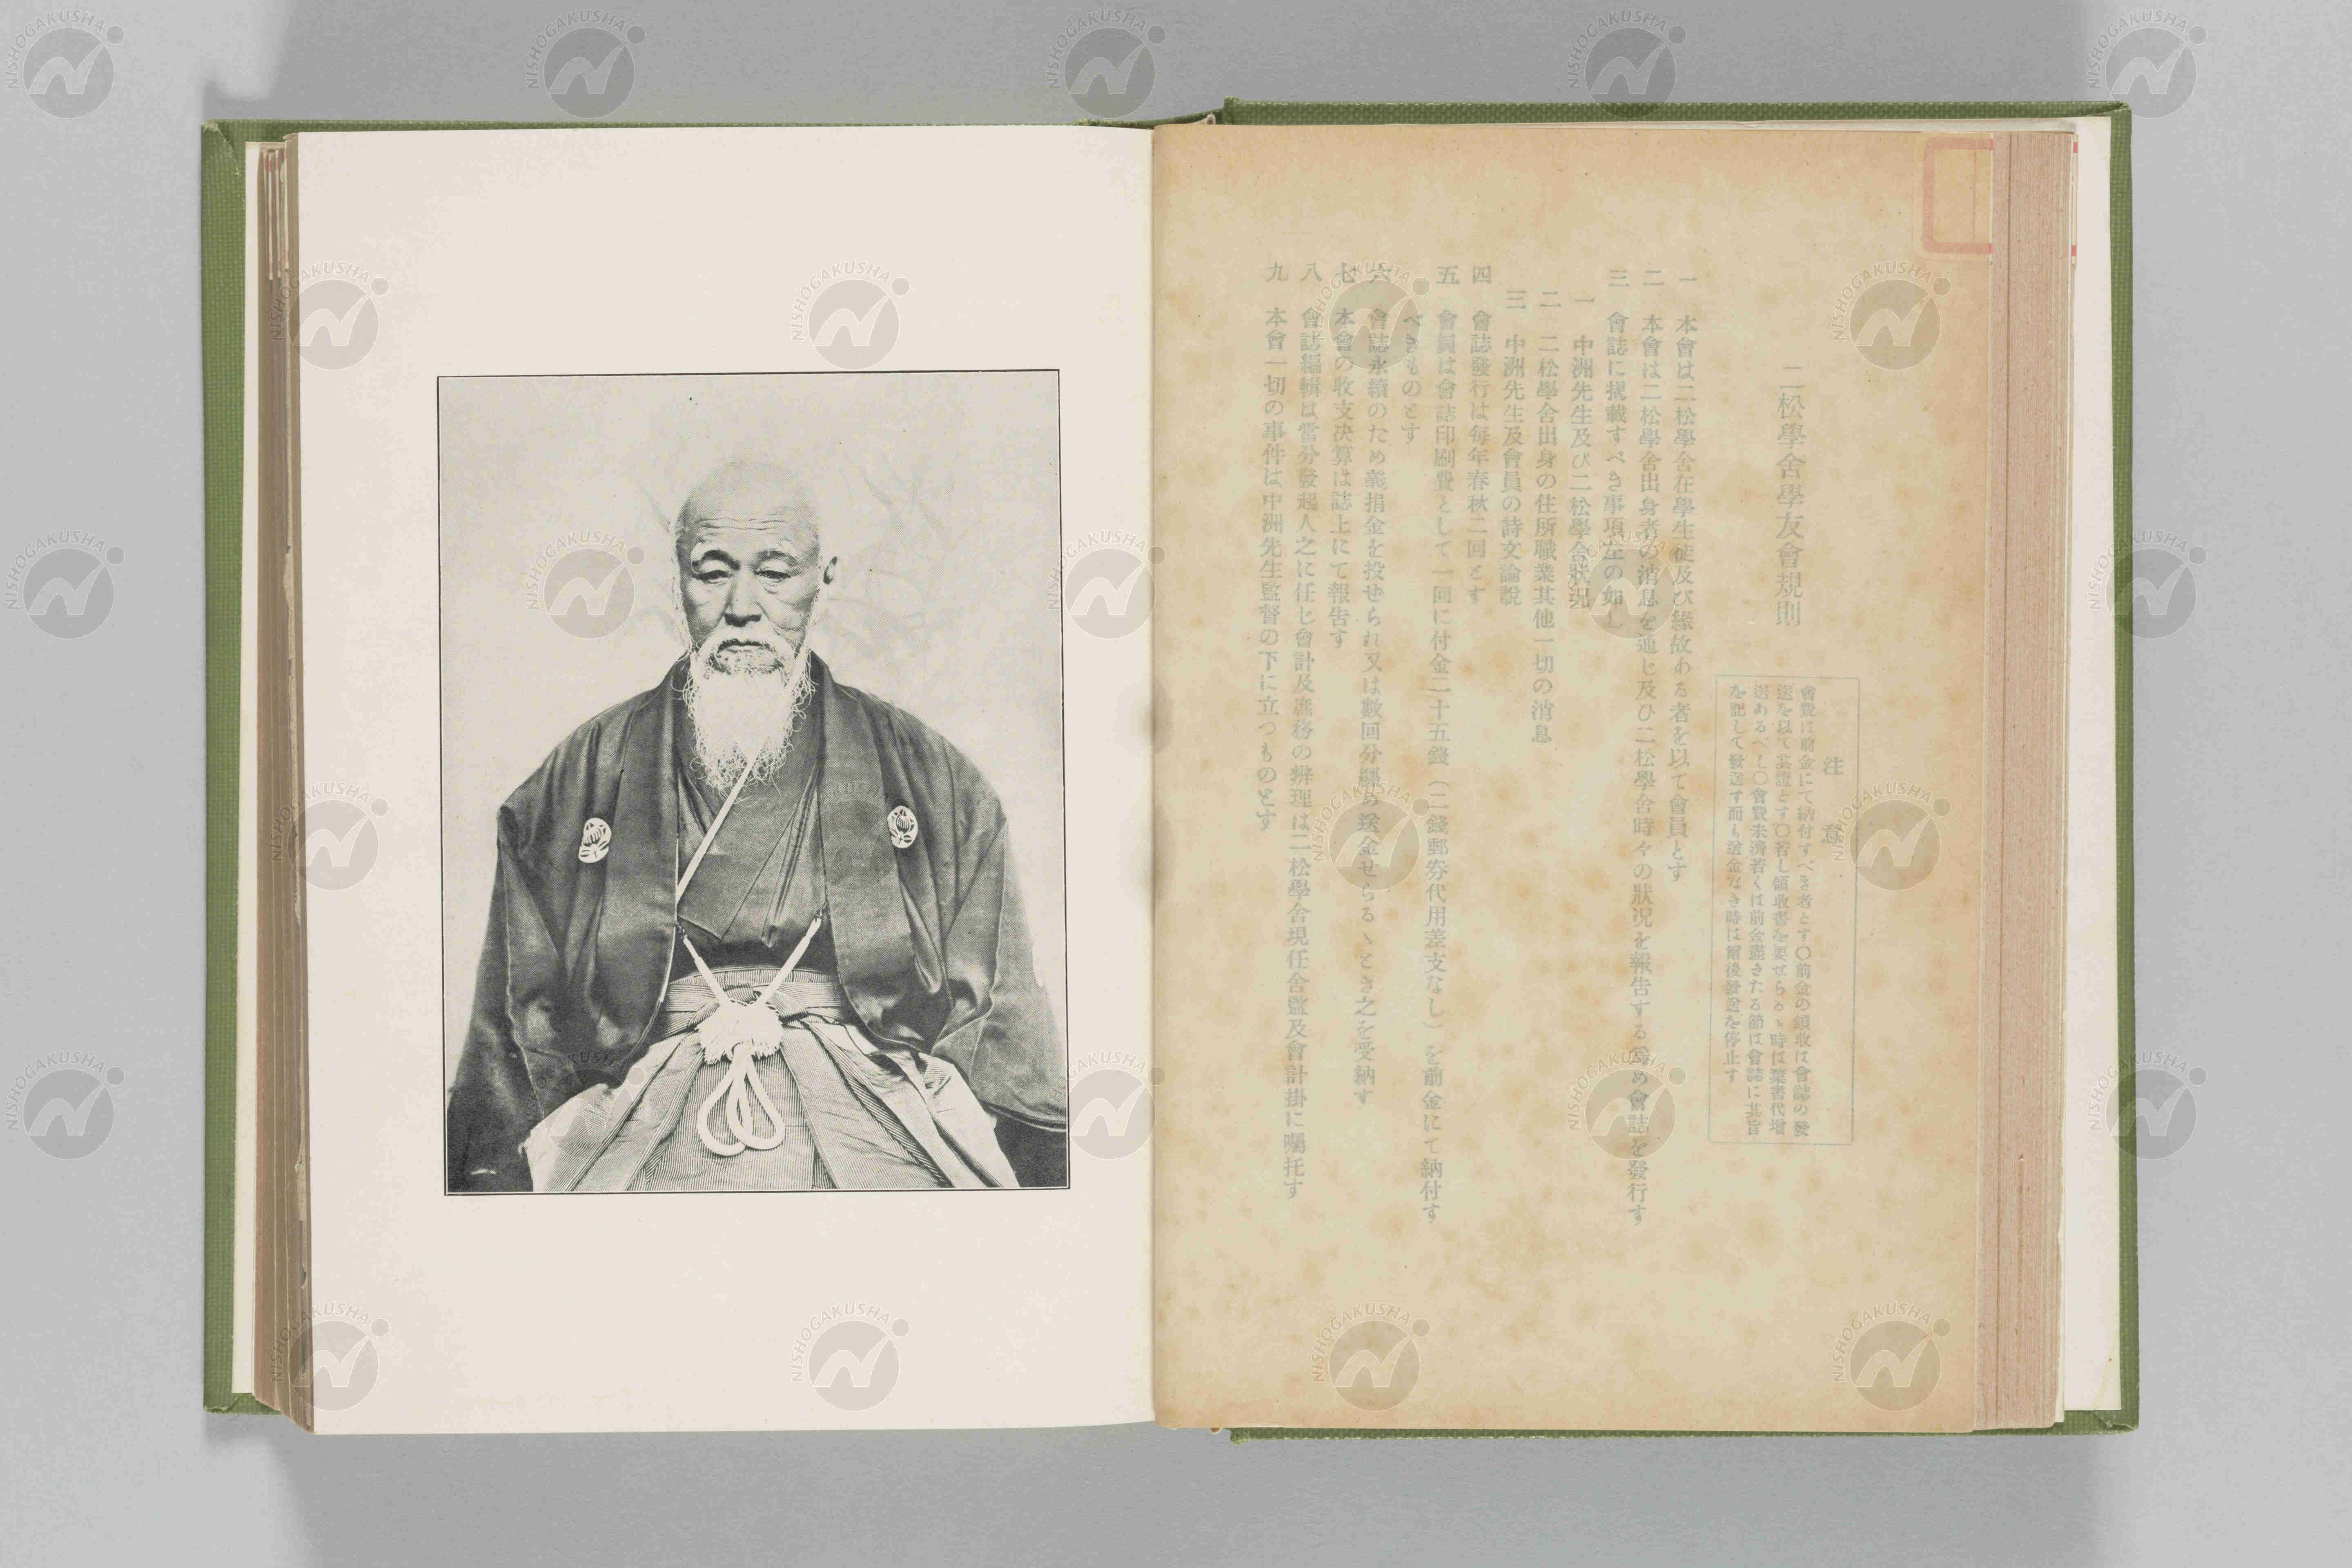 二松學舍學友會規則
注意
會費は前金にて納付すべき者とす〇前金の領收は會誌の發
送を以て其證とす〇若し領收書を要せらるゝ時は葉書代增
送あるべし〇會費未濟若くは前金盡きたる節は會誌に其旨
を記して發送す而も送金なき時は爾後發送を停止す
一 本會は二松學舍在學生徒及び緣故ある者を以て會員とす
二 本會は二松學舍出身者の消息を通じ及ひ二松學舍時々の狀況を報告する爲め會誌を發行す
三 會誌に揭載すべき事項左の如し
一 中洲先生及び二松學舍狀況
二 二松學舍出身の住所職業其他一切の消息
三 中洲先生及會員の詩文論說
四 會誌發行は每年春秋二回とす
五 會員は會誌印刷費として一回に付金二十五錢（二錢郵券代用差支なし）を前金にて納付す
べきものとす
六 會誌永續のため義捐金を投せられ又は數回分纏め送金せらるゝとき之を受納す
七 本會の收支决算は誌上にて報告す
八 會誌編輯は當分發起人之に任じ會計及庶務の辨理は二松學舍現任舍監及會計掛に囑托す
九 本會一切の事件は中洲先生監督の下に立つものとす
NISHOGAKUSHA